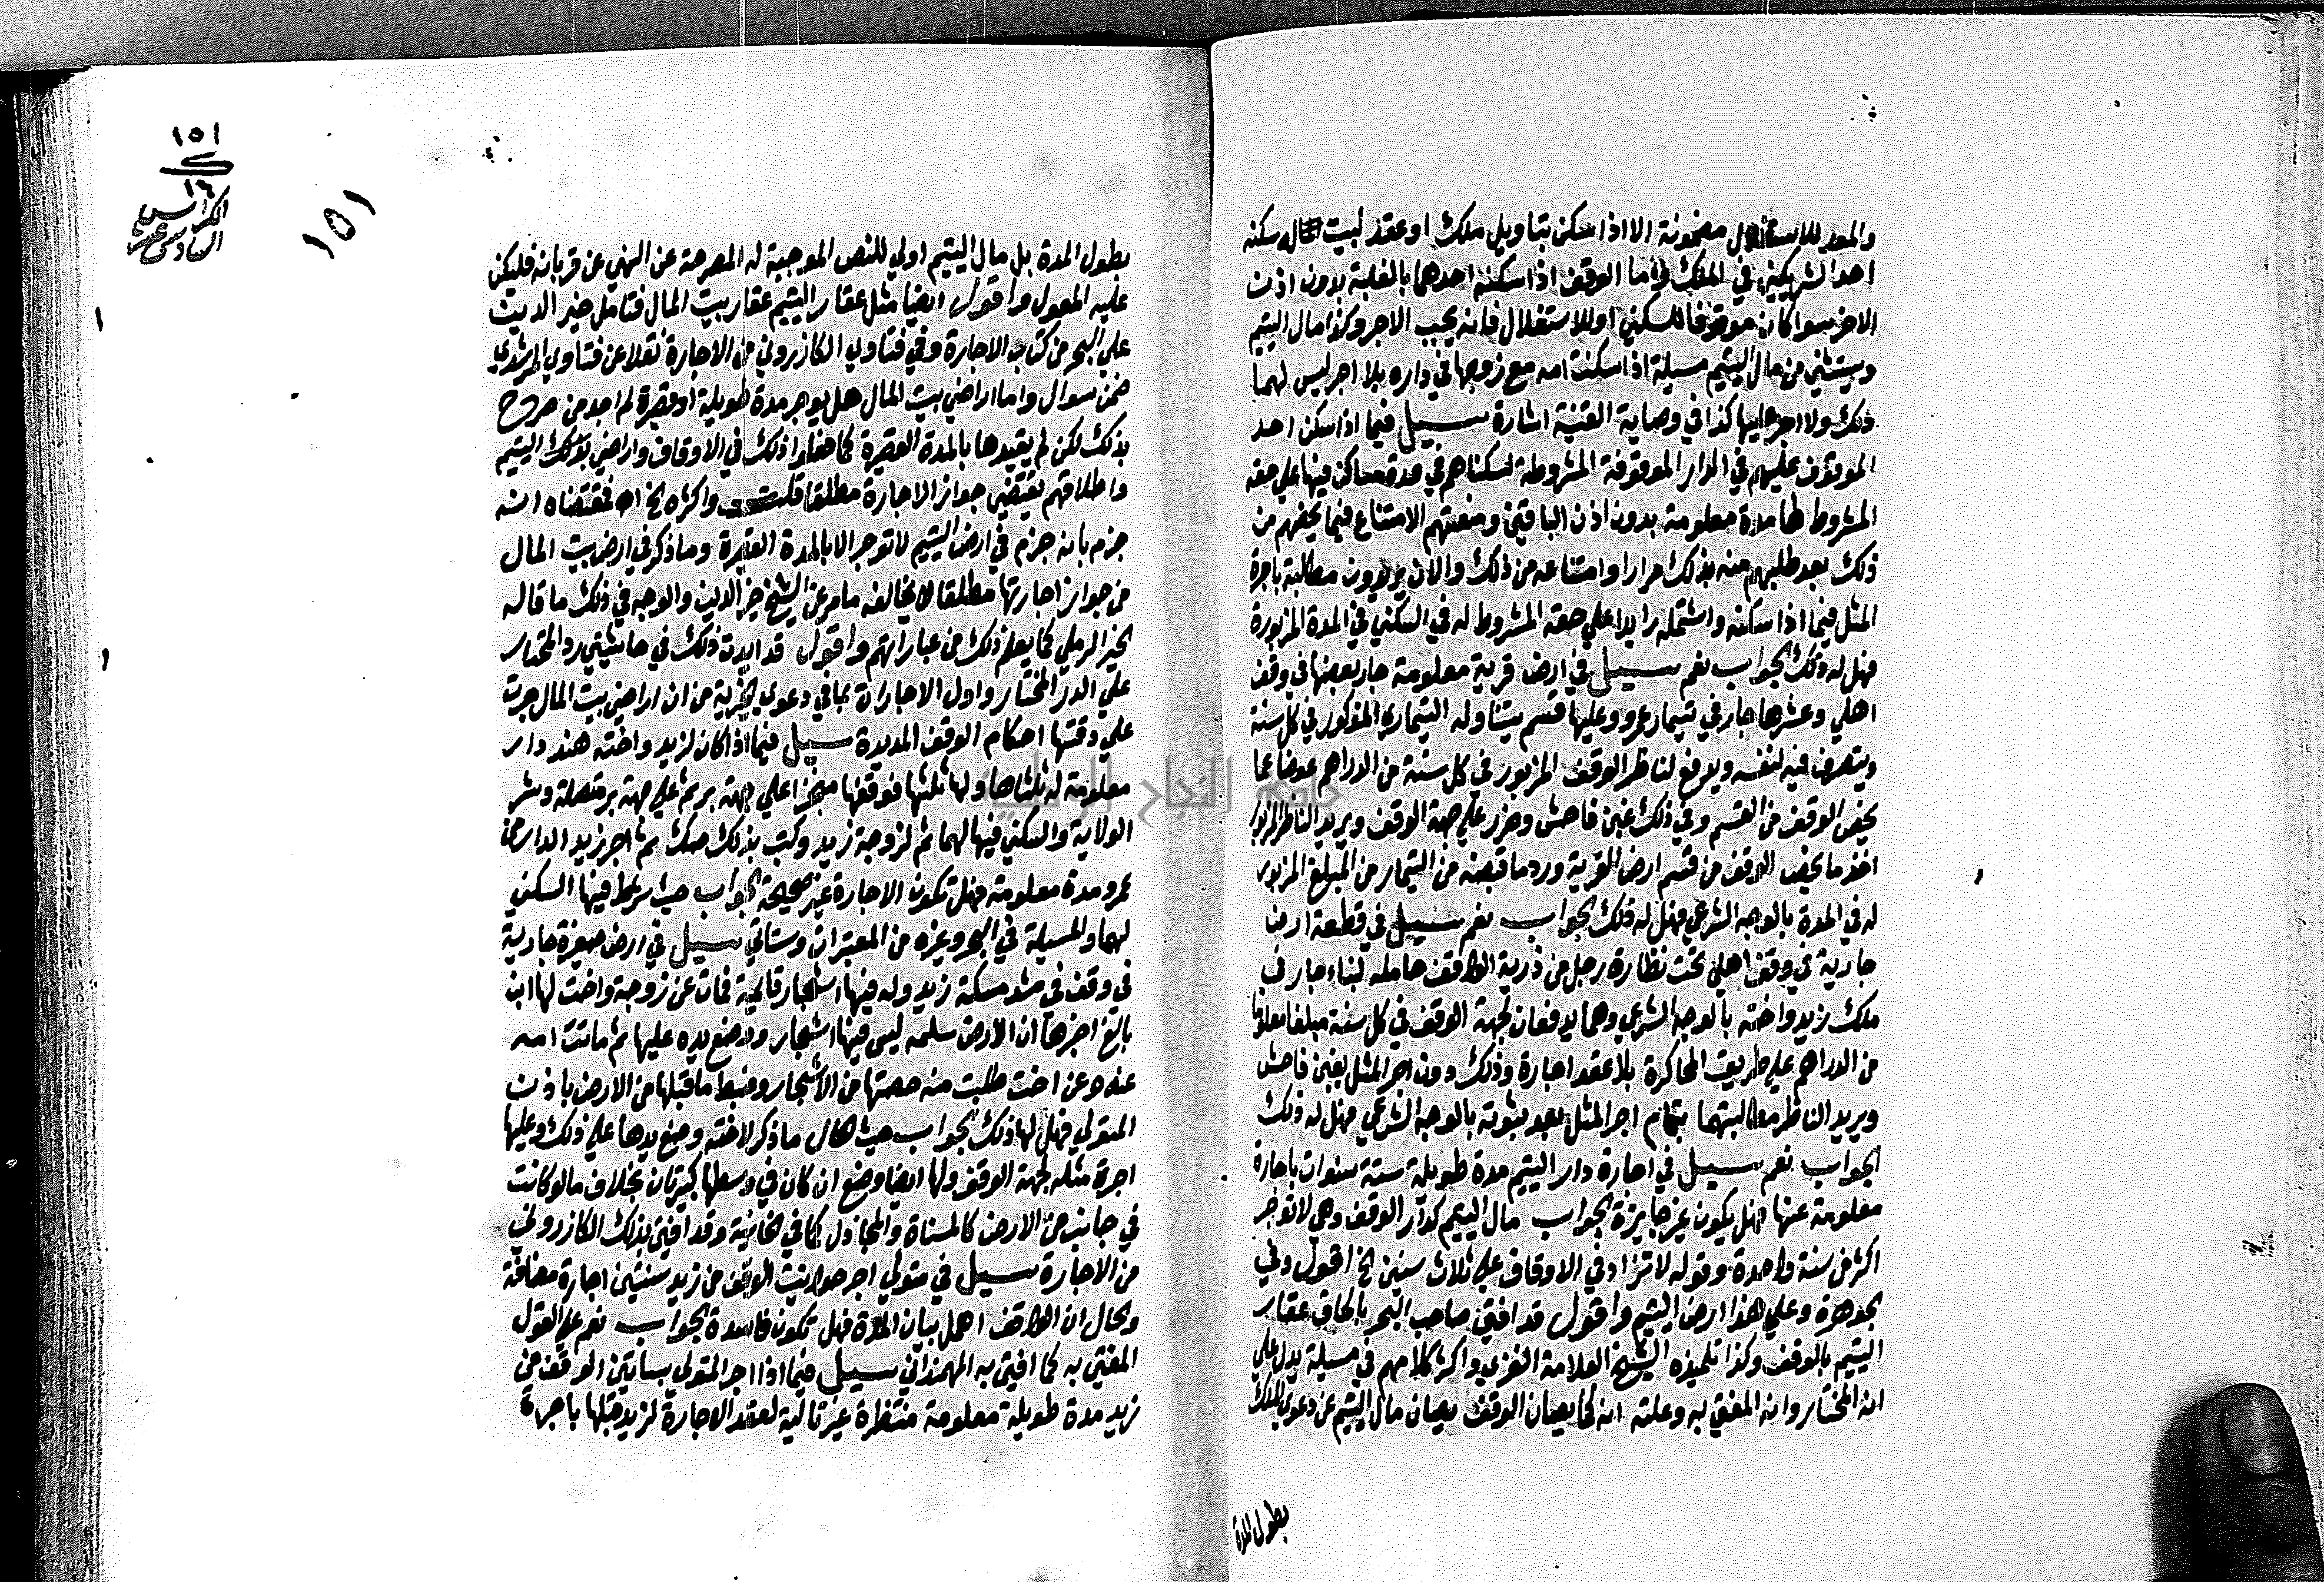 والمعد للاستغلال مضمونة الا اذا سكن بتاويل ملك او عقد كبيت سكنه
احد الشريكين في الملك واما الوقف اذا سكنه احدهما بالغلبة بدون اذن
الاخر سوا كان موقوفا للسكني او للاستغلال فانه يجب الاجر وكذا مال اليتيم
ويستثني من مال اليتيم مسيلة اذا سكنت امه مع زوجها في داره بلا اجر ليس لهما
ذلك ولا اجر عليها كذا في وصاية القنية اشارة سيل فيما اذا سكن احد
الموقوف عليهم في الدار الموقوفة المشروطة لسكناهم في عدة مساكن فيها علي حقه
المشروط لها مدة معلومة بدون اذن الباقين ومنعتهم الامتناع فيما يخصهم من
ذلك بعد طلبهم منه بذلك مرارا وامتناعه من ذلك والان يريدون مطالبة باجرة
المثل فيما اذا سكنه واشتمله زايدا علي حقه المشروط له في السكني في المدة المزبورة
فهل له ذلك الجواب نعم سيل في ارض قرية معلومة جار بعضها في وقف
اهلي وعشرها جار في تيمار عمرو وعليها قسم يتناوله التيماري المذكور في كل سنة
ويتصرف فيه لنفسه ويدفع لناظر الوقف المزبور في كل سنة من الدراهم عوضا عما
يخص الوقف من القسم وفي ذلك غبن فاحش وضرر علي جهة الوقف ويريد الناظر المزبور
اخذ ما يخص الوقف من قسم ارض القرية ورد ما قبضه من التيمار من المبلغ المزبور
له في المدة بالوجه الشرعي فهل له ذلك الجواب نعم سيل في قطعة ارض
جارية في وقف اهلي تحت نظارة رجل من ذرية الواقف حاملة لبناء جار في
ملك زيد واخته بالوجه الشرعي وهما يدفعان لجهة الوقف في كل سنة مبلغا معلوما
من الدراهم علي طريق المحاكرة بلا عقد اجارة وذلك دون اجر المثل بغبن فاحش
ويريد الناظر مطالبتهما بتمام اجر المثل بعد ثبوته بالوجه الشرعي فهل له ذلك
الجواب نعم سيل في اجارة دار اليتيم مدة طويلة ستة سنوات باجارة
معلومة عنها فهل يكون غير جايزة الجواب مال اليتيم كدار الوقف وهي لا توجر
اكثر من سنة واحدة وقوله لا تزاد في الاوقاف علي ثلاث سنين الخ اقول وفي
الجوهرة وعلي هذا ارض اليتيم واقول قد افتي صاحب البحر بالحاق عقار
اليتيم بالوقف وكذا تلميذه الشيخ العلامة الغزي واكثر كلامهم في مسيلة يدل علي
انه المختار وانه المفتي به وعلته انه كما يصان الوقف يصان مال اليتيم عن دعوي الملك
بطول المدة
١٥١
١٦
الكراس
السادس عشر
١٥١
بطول المدة بل مال اليتيم اولي للنص الموجبة له المصرحة عن النهي عن قربانه فليكن
عليه المعول واقول ايضا مثل عقار اليتيم عقار بيت المال فتامل خير الدين
علي البحر من كتاب الاجارة وفي فتاوي الكازروني من الاجارة نقلا عن فتاوي المرشدي
ضمن سوال واما اراضي بيت المال هل يوجر مدة طويلة او قصيرة لم اجد من صرح
بذلك لكن لم يقيدها بالمدة القصيرة كما فعلوا ذلك في الاوقاف واراضي بذلك اليتيم
واطلاقهم يقتضي جواز الاجارة مطلقا قلت واكثره الخ اه فمقتضاه انه
جزم بانه جزم في ارض اليتيم لا توجر الا بالمدة القصيرة وما ذكر في ارض بيت المال
من جواز اجارتها مطلقا لا يخالفه ما مر عن الشيخ خير الدين والوجه في ذلك ما قاله
الخير الرملي كما يعلم ذلك من عباراتهم واقول قد ايدت ذلك في حاشيتي رد المحتار
علي الدر المختار واول الاجارات بما في دعوي الخيرية من ان اراضي بيت المال جرت
علي رقبتها احكام الوقف المديدة سيل فيما اذا كان لزيد واخته هند دار
معلومة له ثلثاها ولها ثلثها فوقفها منجزا علي جهة بر ثم علي جهة بر متصلة وشر
الولاية والسكني فيها لهما ثم لزوجة زيد وكتب بذلك صك ثم اجر زيد الدار من
عمرو مدة معلومة فهل تكون الاجارة غير صحيحة الجواب حيث شرط فيها السكني
لهما والمسيلة في البحر وغيره من المعتبرات وستاتي سيل في ارض صغيرة جارية
في وقف في مشد مسكة زيد وله فيها اشجار قايمة فمات عن زوجة واخت لها ابن
بالغ اخبرها ان الارض سلمه ليس فيها اشجار ووضع يده عليها ثم ماتت امه
عنه وعن اخت طلبت منه حصتها من الاشجار وضبط ما قبلها من الارض باذن
المتولي فهل لها ذلك الجواب حيث كان ما ذكر لاخته وضع يدها علي ذلك وعليها
اجرة مثله لجهة الوقف ولها ايضا وضع ان كان في وسطها كبيرتان بخلاف ما لو كانت
في جانب من الارض كالمسناة والجداول كما في الخانية وقد افتي بذلك الكازروني
من الاجارة سيل في متولي اجر حوانيت الوقف من زيد سنتين اجارة مضافة
والحال ان الواقف اهمل بيان المدة فهل تكون فاسدة الجواب نعم علي القول
المفتي به كما افتي به المهمنداني سيل فيما اذا اجر المتولي بساتين الوقف من
زيد مدة طويلة معلومة منتظرة غير تالية لعقد الاجارة لزيد قبلها باجرة